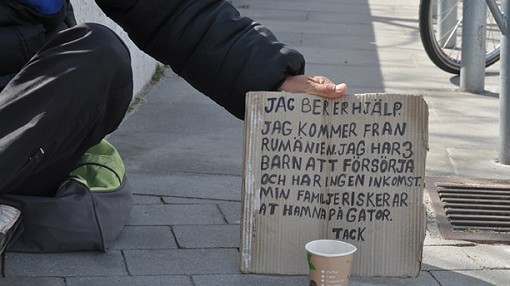 JAG BER ER HJÄLP.
JAG KOMMER FRAN
RUMÄNIEN. JAG HAR 3
BARN ATT FÖRSÖRJA
OCH HAR INGEN INKOMST.
MIN FAMILJE RISKERAR
AT HAMNA PÅ GATOR.
TACK